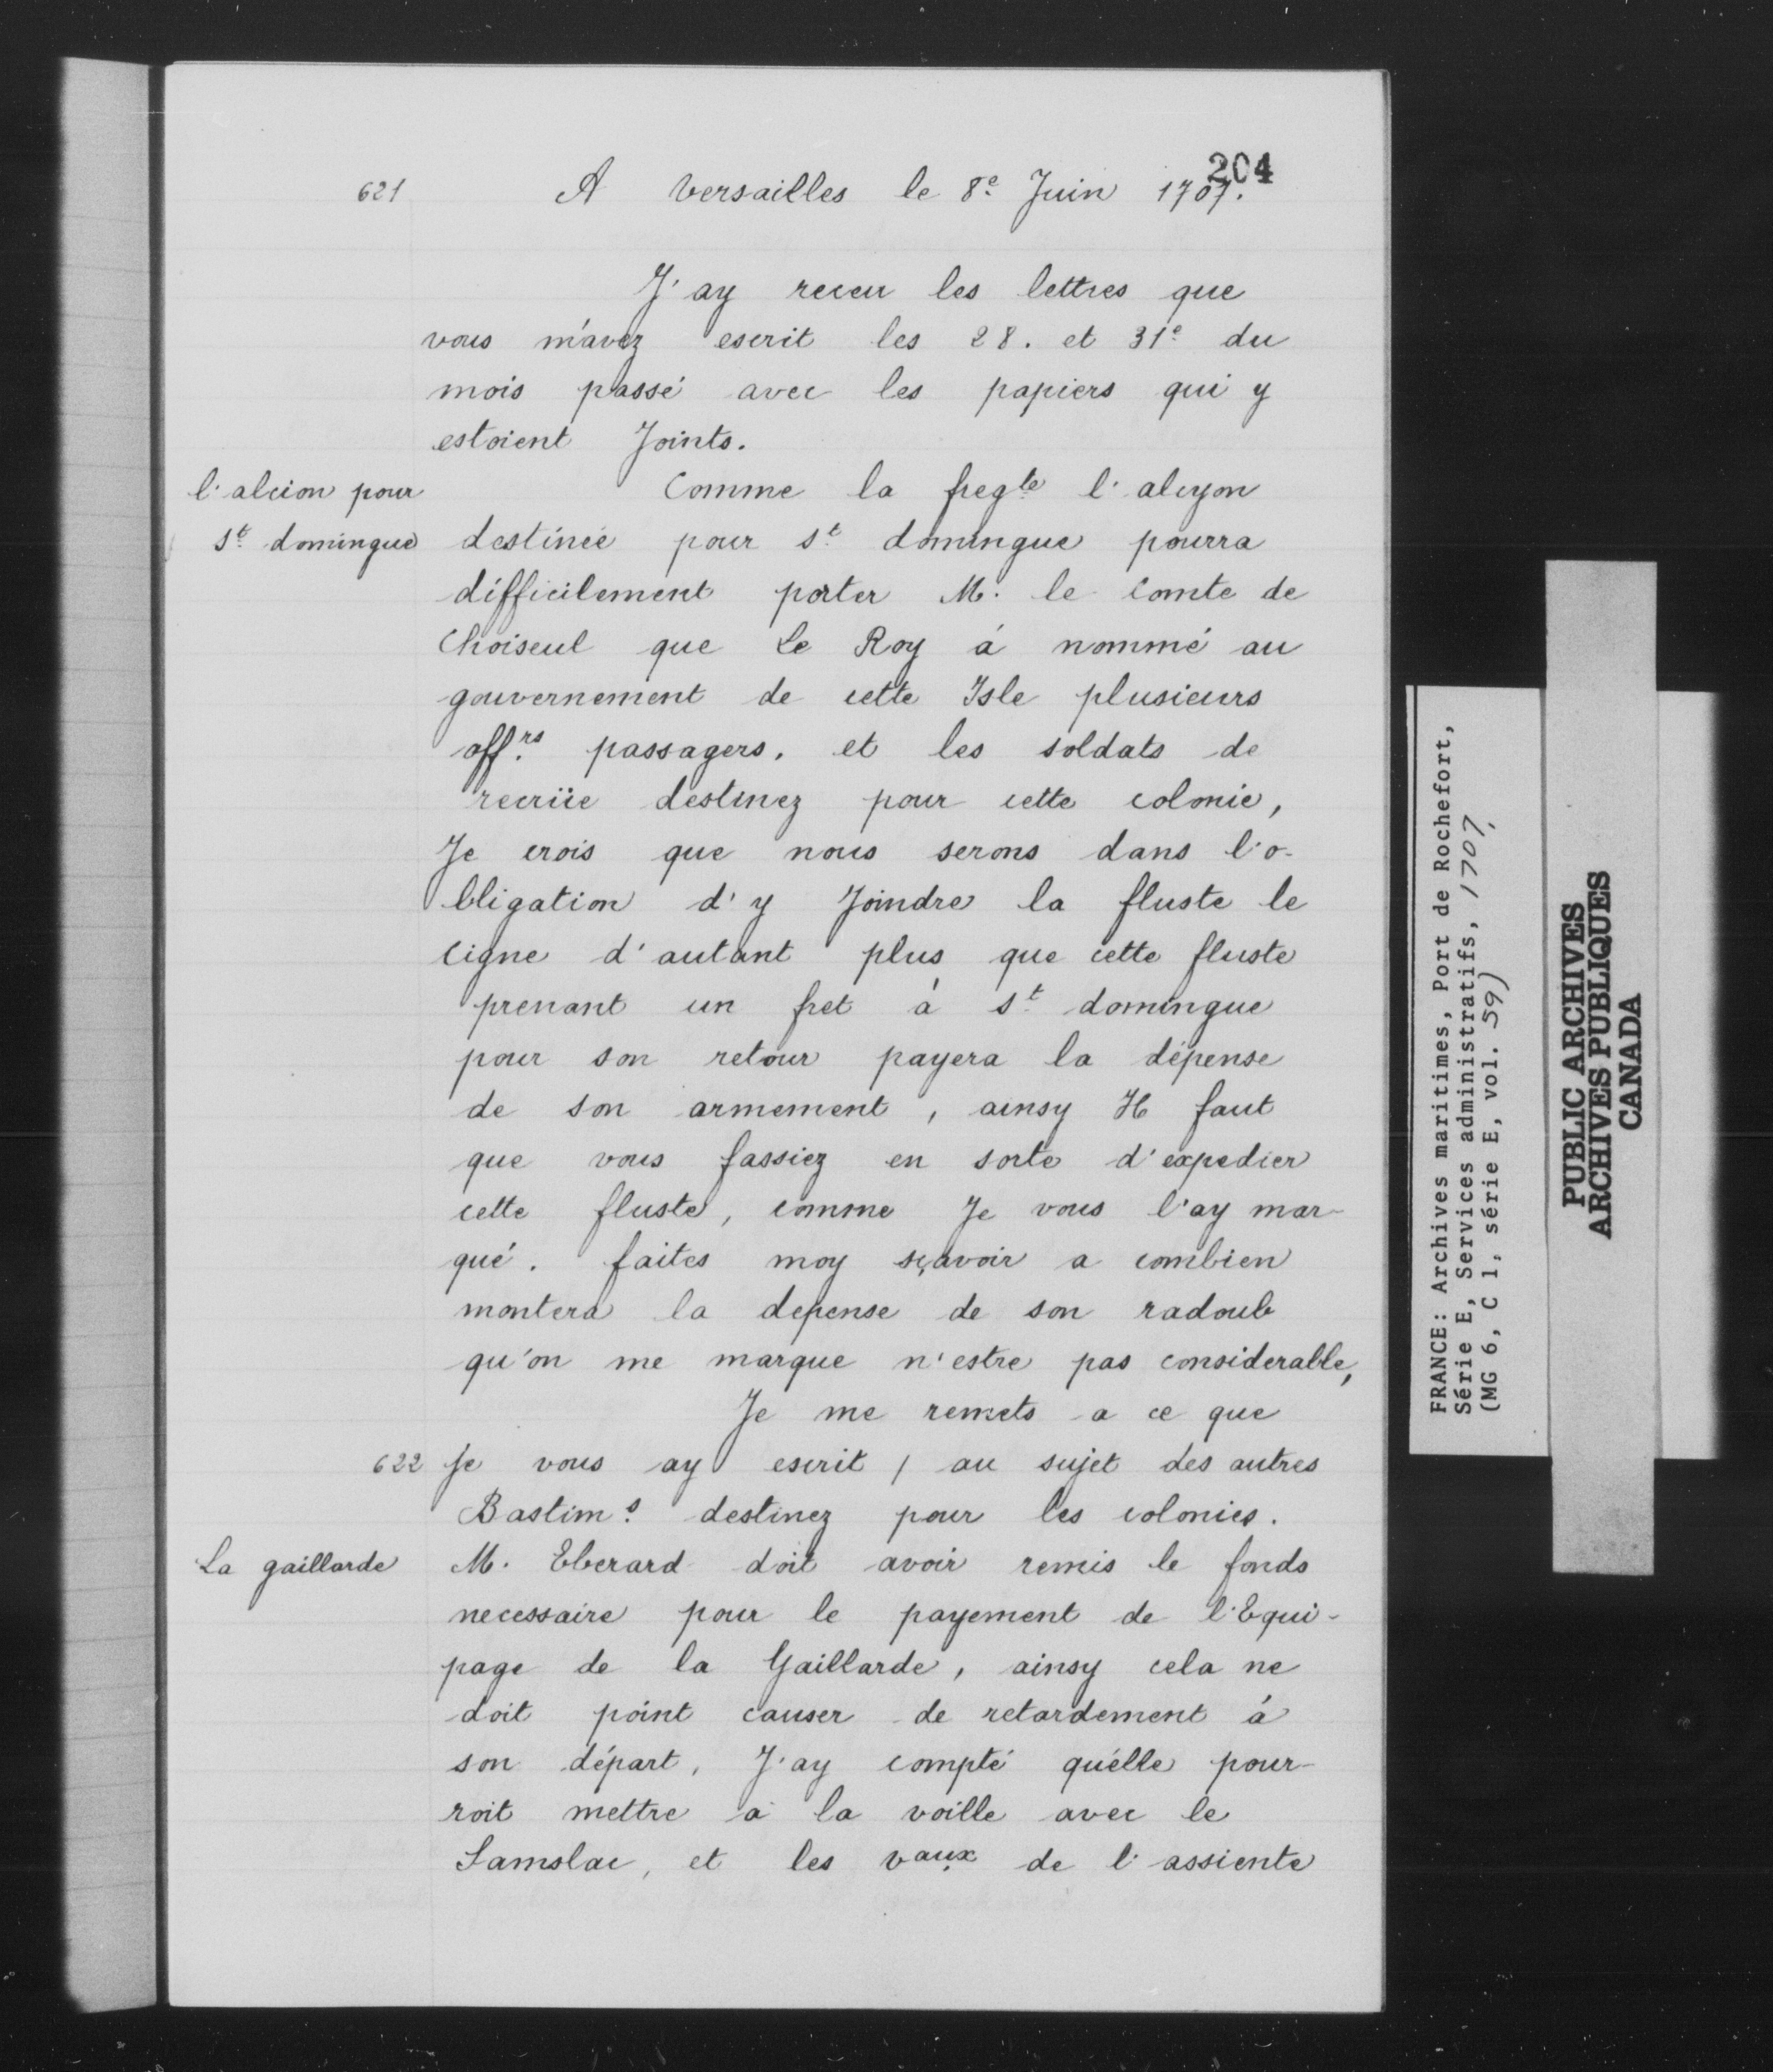 204
621 A Versailles le 8e Juin 1707.
J'ay receu les lettres que
vous m'avez escrit les 28. et 31e du
mois passé avec les papiers qui y
estoient Joints.
l'alcion pour
St domingue
Comme la fregte l'alcyon
destinée pour St domingue pourra
difficilement porter M. le Comte de
Choiseul que Le Roy à nommé au
gouvernement de cette Isle plusieurs
offrs passagers, et les soldats de
recrüe destinez pour cette colonie,
Je crois que nous serons dans l'o-
bligation d'y Joindre la fluste le
Cigne d'autant plus que cette fluste
prenant un fret à St domingue
pour son retour payera la dépense
de son armement, ainsy Il faut
que vous fassiez en sorte d'expedier
cette fluste, comme Je vous l'ay mar-
qué. faites moy sçavoir a combien
montera la depense de son radoub
qu'on me marque n'estre pas considerable,
Je me remets a ce que
622 Je vous ay escrit / au sujet des autres
Bastims destinez pour les colonies.
La gaillarde
M. Eberard doit avoir remis le fonds
necessaire pour le payement de l'Equi-
page de la Gaillarde, ainsy cela ne
doit point causer de retardement à
son départ, J'ay compté qu'elle pour-
roit mettre à la voille avec le
Samslac, et les vaux de l'assiente
FRANCE: Archives maritimes, Port de Rochefort,
Série E, Services administratifs, 1707,
(MG 6, C 1, série E, vol. 59)
PUBLIC ARCHIVES
ARCHIVES PUBLIQUES
CANADA